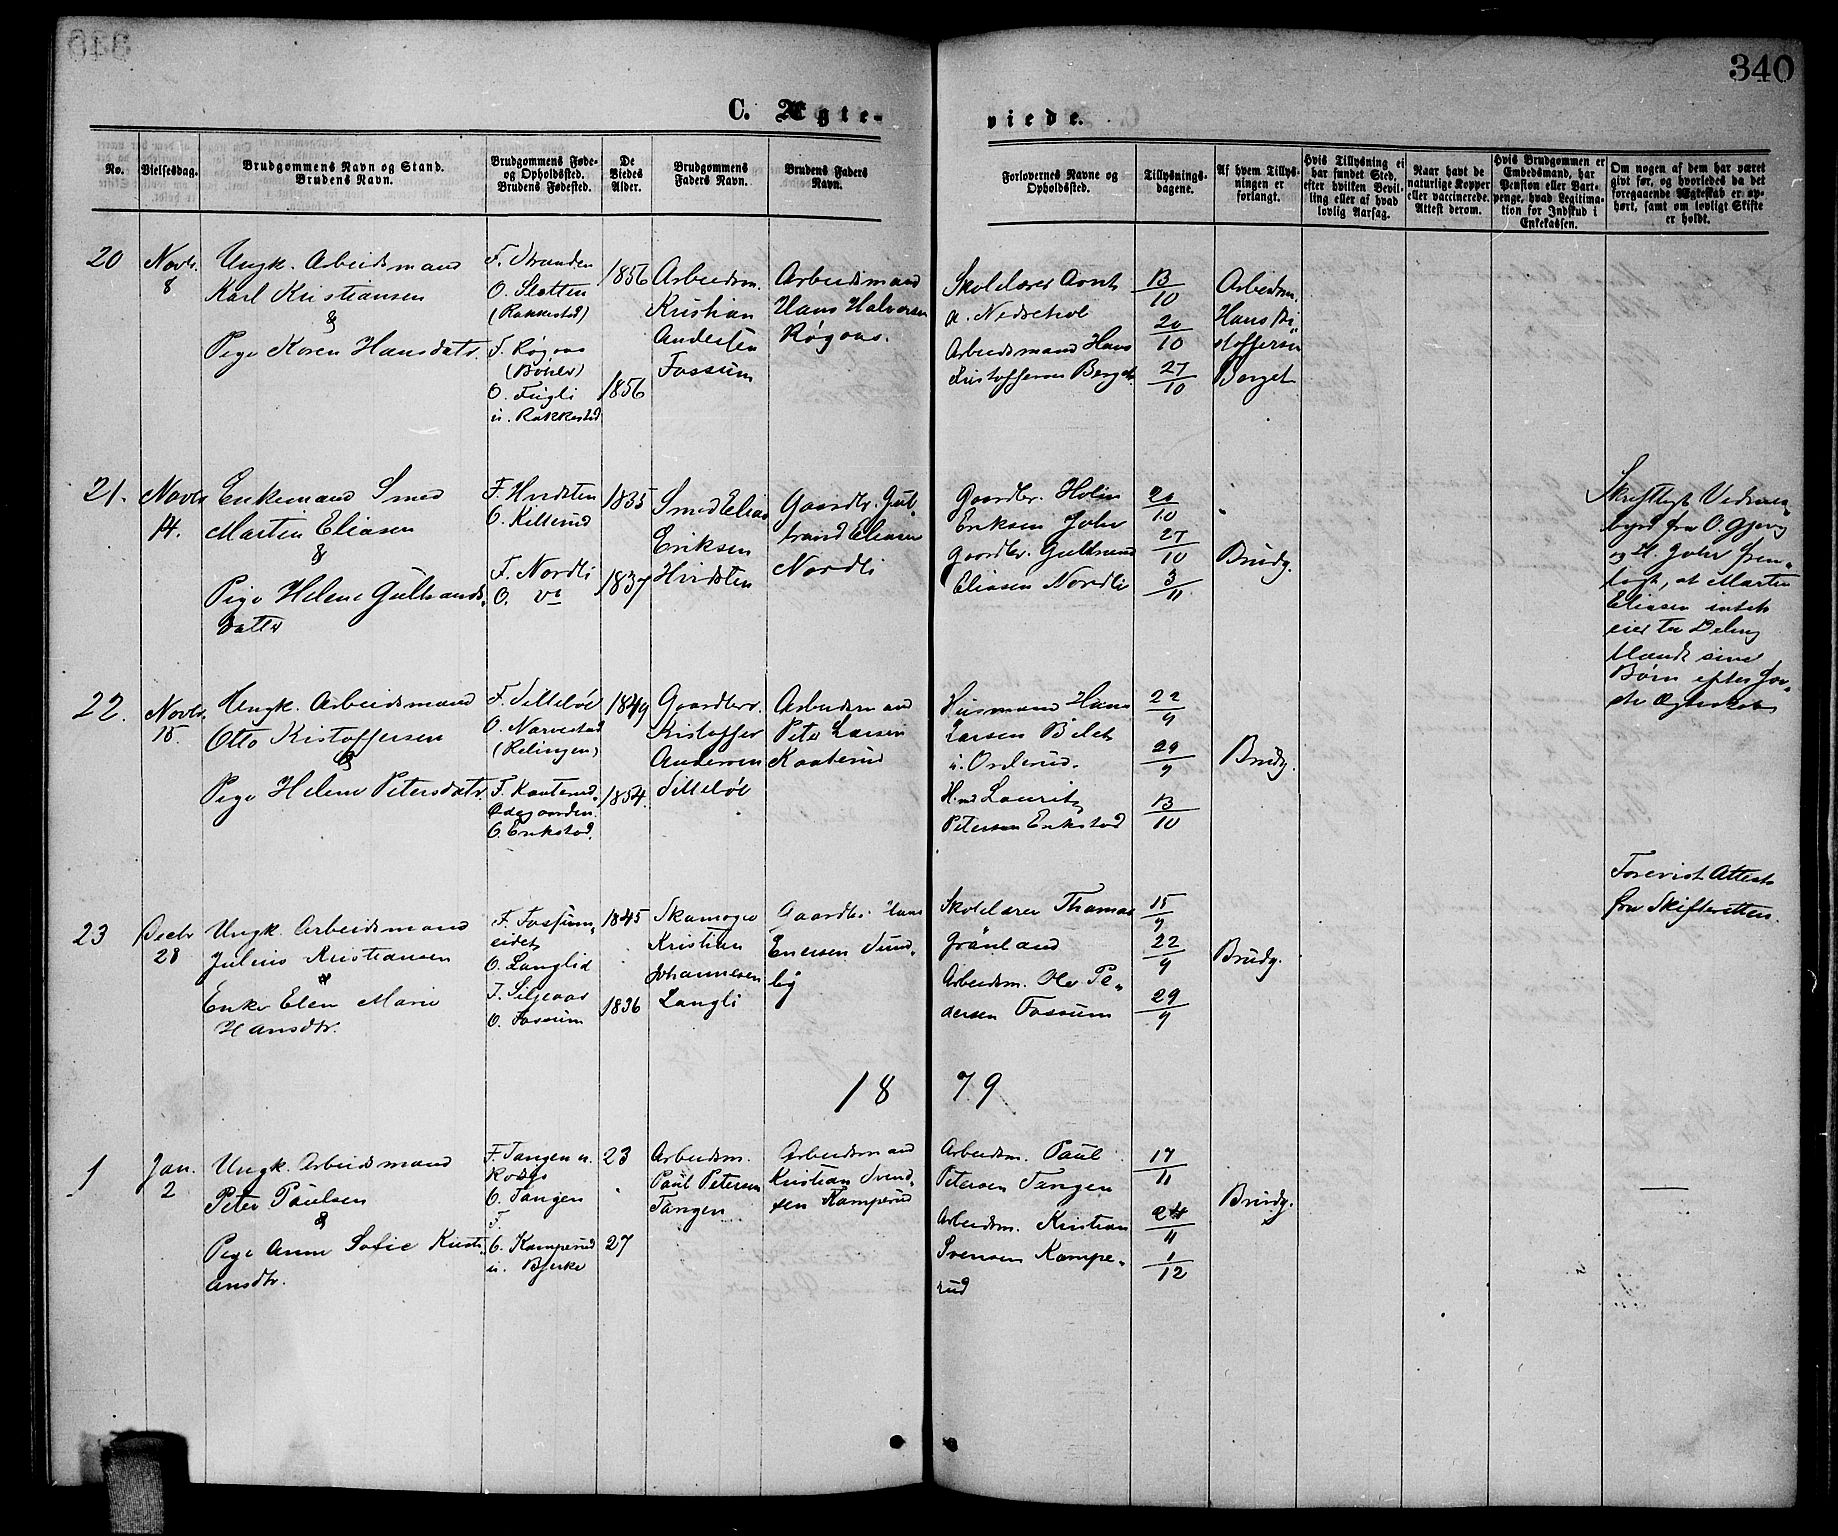 340
C. Ægte-
viede.
No.
Vielsesdag.
Brudgommens Navn og Stand.
Brudens Navn.
Brudgommens Føde-
og Opholdssted.
Brudens Fødested.
De
Viedes
Alder.
Brudgommens
Faders Navn.
Brudens Faders
Navn.
Forlovernes Navne og
Opholdssted.
Tillysnings-
dagene.
Af hvem Tillys-
ningen er
forlangt.
Hvis Tillysning ei
har fundet Sted,
efter hvilken Bevil-
ling eller af hvad
lovlig Aarsag.
Naar havt de
naturlige Kopper
eller vaccinerede.
Attest derom.
Hvis Brudgommen er
Embedsmand, har
Pension eller Vart-
penge, hvad Legitima-
tion for Indskud i
Enkekassen.
Om nogen af dem har været
gift før, og hvorledes da det
foregaaende Ægteskab er op-
hørt, samt om lovligt Skifte
er holdt.
20
Novbr.
8
Ungk. Arbeidsmand
Karl Kristiansen
&
Pige Karen Hansdatr.
F. Stranden
O. Sletten
(Rakkestad)
F. Røgaas
O. Fugli
u. Rakkestad
1856
1856
Arbeidsm.
Kristian
Andersen
Fossum
Arbeidsmand
Hans Halvorsen
Røgaas.
Skolelærer Arnt
A. Nedreholt
Arbeidsmand Hans
Kristoffersen Berget
13/10
20/10
27/10
Arbeidsm.
Hans Kri-
stoffersen
Berget
21.
Novbr
14.
Enkemand Smed
Martin Eliasen
&
Pige Helene Gulbrands-
datter
F. Hvidsten
O. Killerud
F. Nordli
O. do
1835
1837
Smed Elias
Eriksen
Hvidsten
Gaardbr. Gul-
brand Eliasen
Nordli
Gaardbr. Holm
Eriksen Joler
Gaardbr. Gulbrand
Eliasen Nordli
20/10
27/10
3/11
Brudg.
Skriftligt Vidnes-
byrd fra O. Gjevg
og H. Joler frem-
lagt, at Martin
Eliasen intet
eier til Deling
blandt sine
Børn efter før-
ste Ægteskab
22.
Novbr.
15.
Ungk. Arbeidsmand
Otto Kristoffersen
&
Pige Helene Petersdatr.
F. Silleløl
O. Narvestad
(Relingen)
F. Kaaterud
Ødegaarden.
O. Erikstad.
1849
1854.
Gaardbr.
Kristoffer
Andersen
Silleløl
Arbeidsmand
Peter Larsen
Kaaterud
Husmand Hans
Larsen Bilet
u. Orderud.
Hmd Lauritz
Petersen Erikstad
22/9
29/9
13/10
Brudg.
23
Decbr
28
Ungk. Arbeidsmand
Julius Kristiansen
&
Enke Elen Marie
Hansdtr.
F. Fossum-
eidet
O. Langlid
F. Siljeaas
O. Fossum
1845
1836
Skomager
Kristian
Johannesen
Langli
Gaardbr. Hans
Enersen Sund-
by
Skolelærer Thomas
Grønland
Arbeidsm. Ole Pe-
dersen Fossum
15/9
22/9
29/9
Brudg.
Forevist Attest
fra Skifteretten.
1879
1
Jan.
2
Ungk. Arbeidsmand
Peter Paulsen
&
Pige Anne Sofie Kristi-
ansdtr.
F. Tangen u.
O. Tangen
F.
O. Kamperud
u. Bjerke
23
27
Arbeidsm.
Paul Petersen
Tangen
Arbeidsmand
Kristian Svend-
sen Kamperud
Arbeidsm. Paul
Petersen Tangen
Arbeidsm. Kristian
Svensen Kampe-
rud
17/11
24/11
1/12
Brudg.